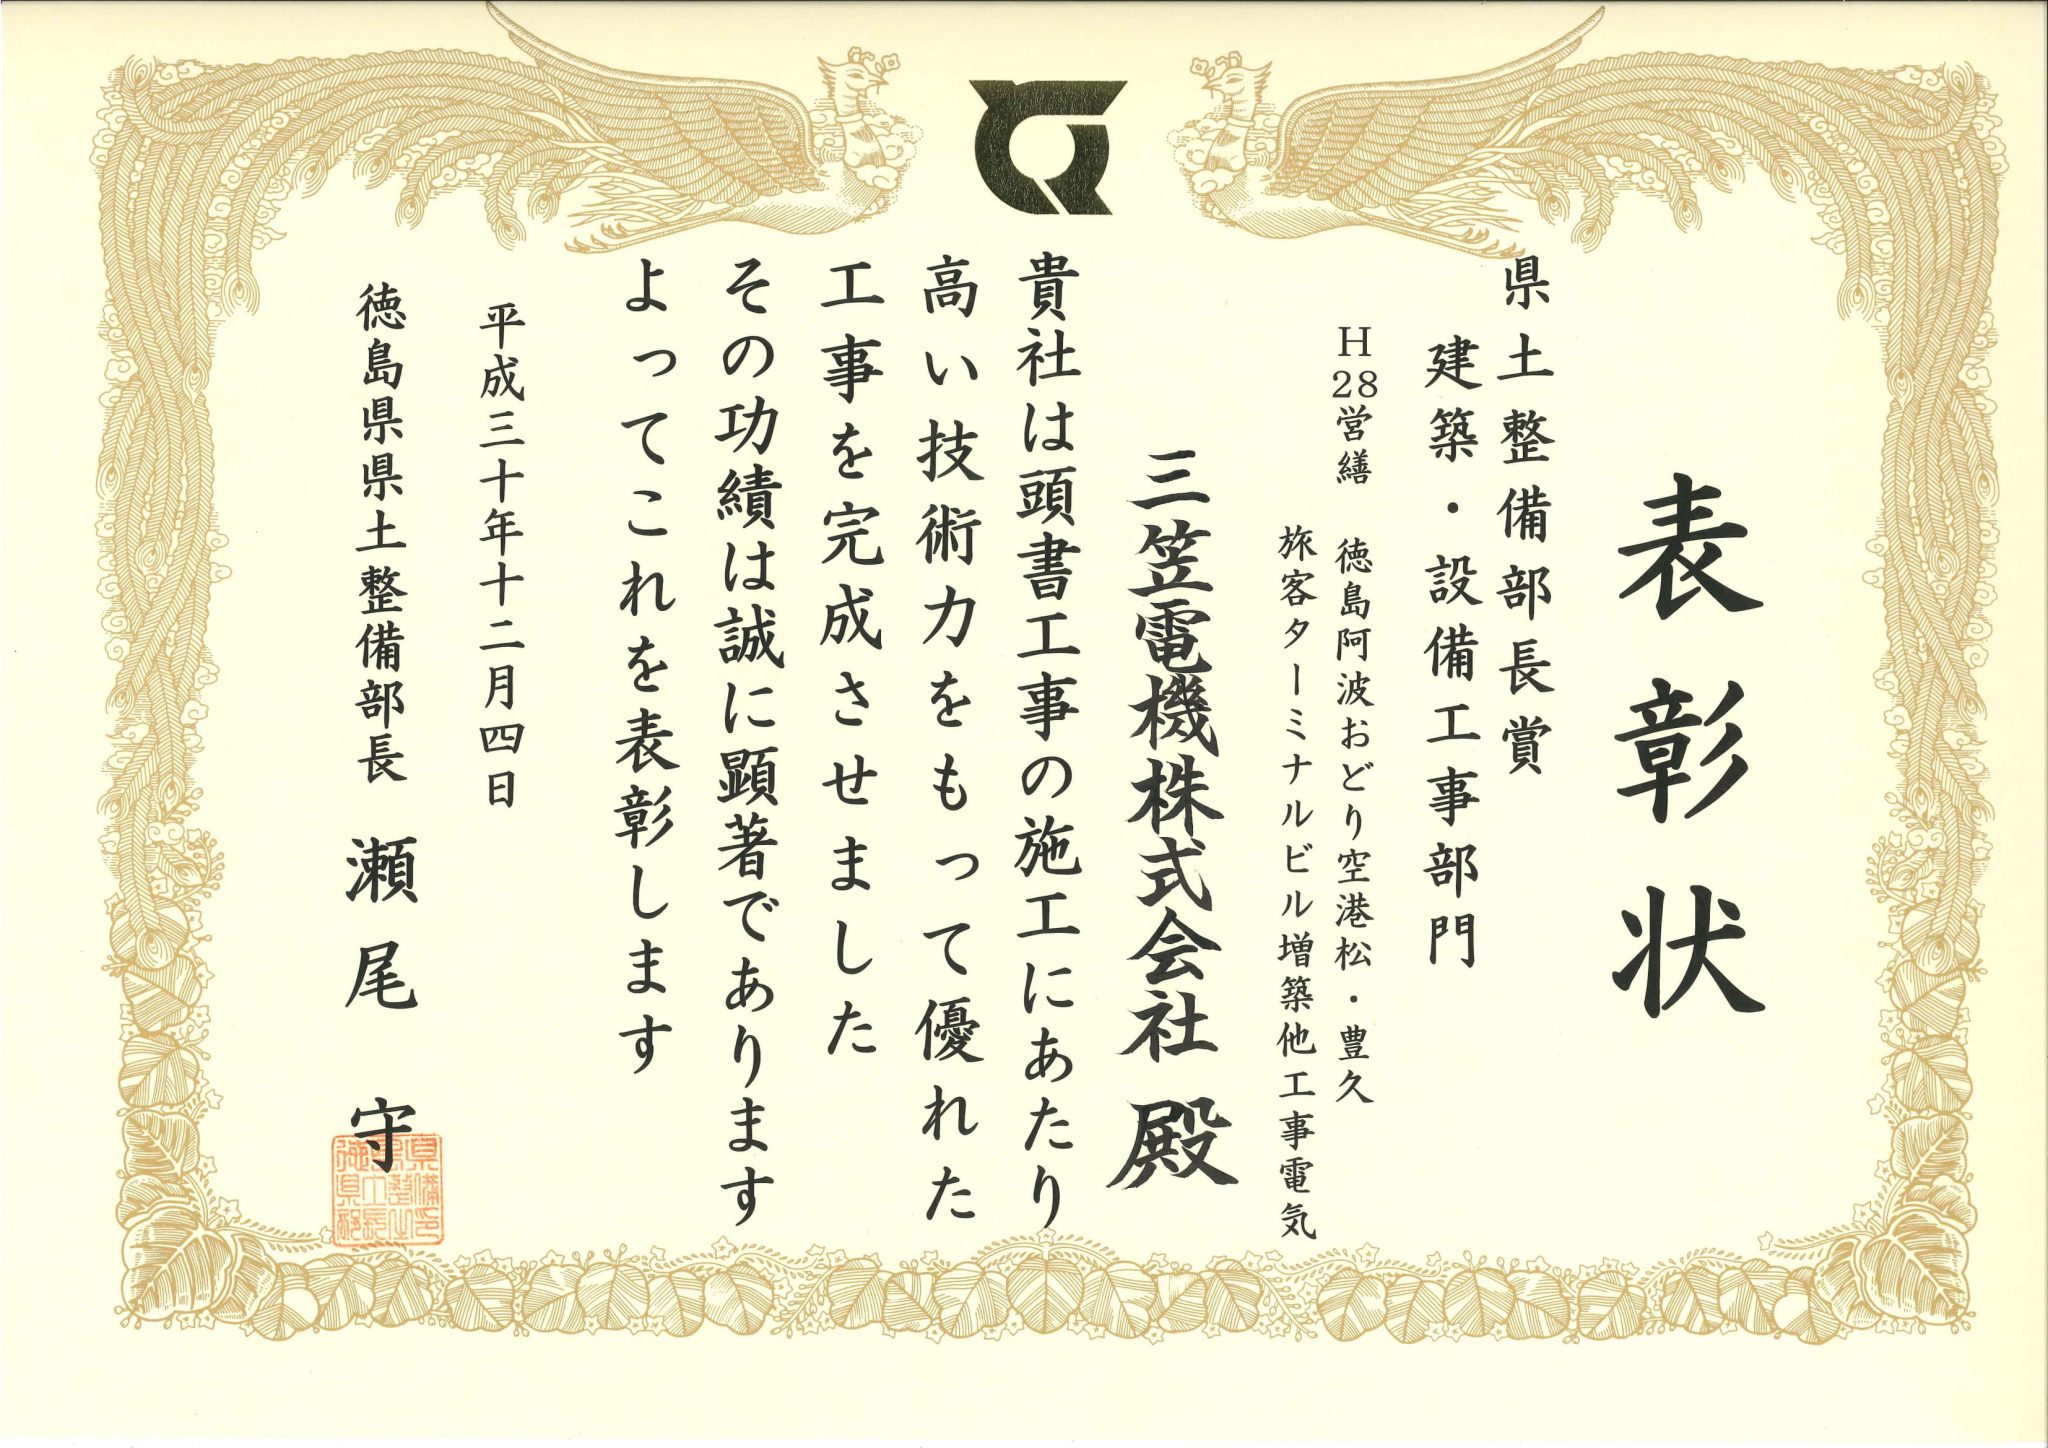 表彰状
県土整備部長賞
建築・設備工事部門
H28営繕 徳島阿波おどり空港松・豊久
旅客ターミナルビル増築他工事電気
三笠電機株式会社 殿
貴社は頭書工事の施工にあたり
高い技術力をもって優れた
工事を完成させました
その功績は誠に顕著であります
よってこれを表彰します
平成三十年十二月四日
徳島県県土整備部長 瀬尾 守